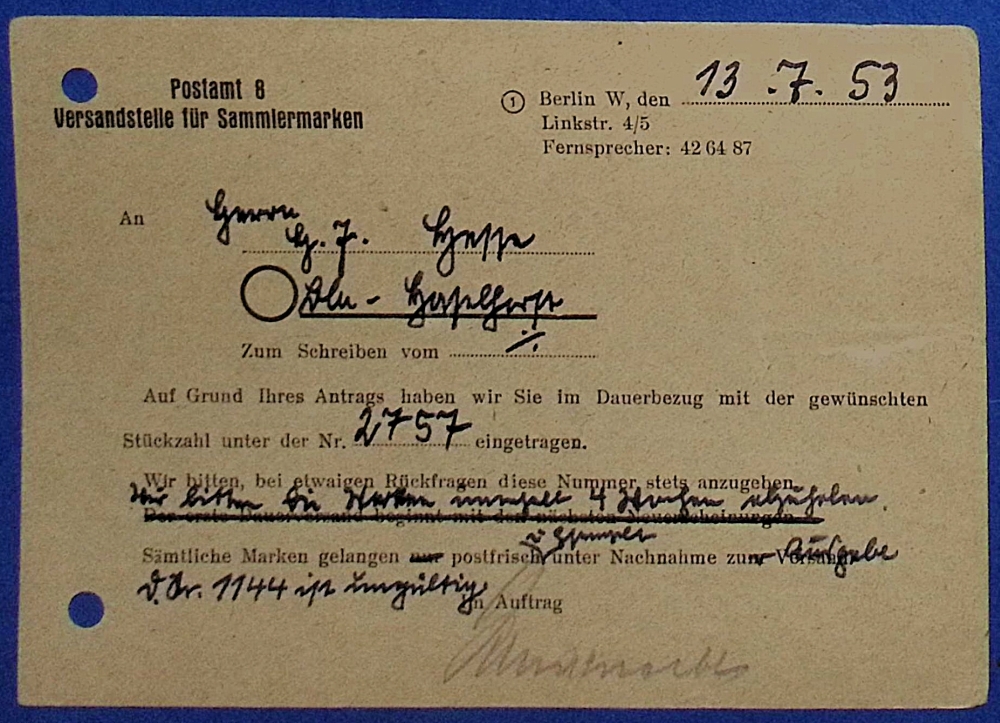 Postamt 8
Versandstelle für Sammlermarken
1 Berlin W, den 13.7.53
Linkstr. 4/5
Fernsprecher: 42 64 87
An Herrn
G. J. Hesse
Bln - Haselhorst
Zum Schreiben vom ./.
Auf Grund Ihres Antrags haben wir Sie im Dauerbezug mit der gewünschten
Stückzahl unter der Nr. 2757 eingetragen.
Wir bitten, bei etwaigen Rückfragen diese Nummer stets anzugeben.
Wir bitten die Marken innerhalb 4 Wochen abzuholen
Der erste Dauerversand beginnt mit den nächsten Neuerscheinungen.
Sämtliche Marken gelangen nur postfrisch unter Nachnahme zur Versand Ausgabe
D. Nr. 1144 ist ungültig
Im Auftrag